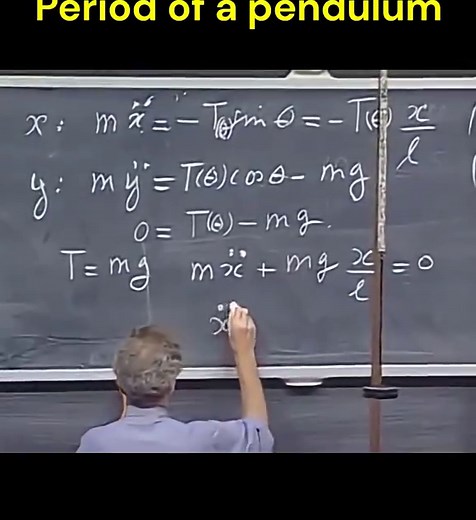 Period of a pendulum
x: mẍ = -T(θ) sin θ = -T(θ) x/l
y: mÿ = T(θ) cos θ - mg
0 = T(θ) - mg.
T = mg mẍ + mg x/l = 0
ẍ